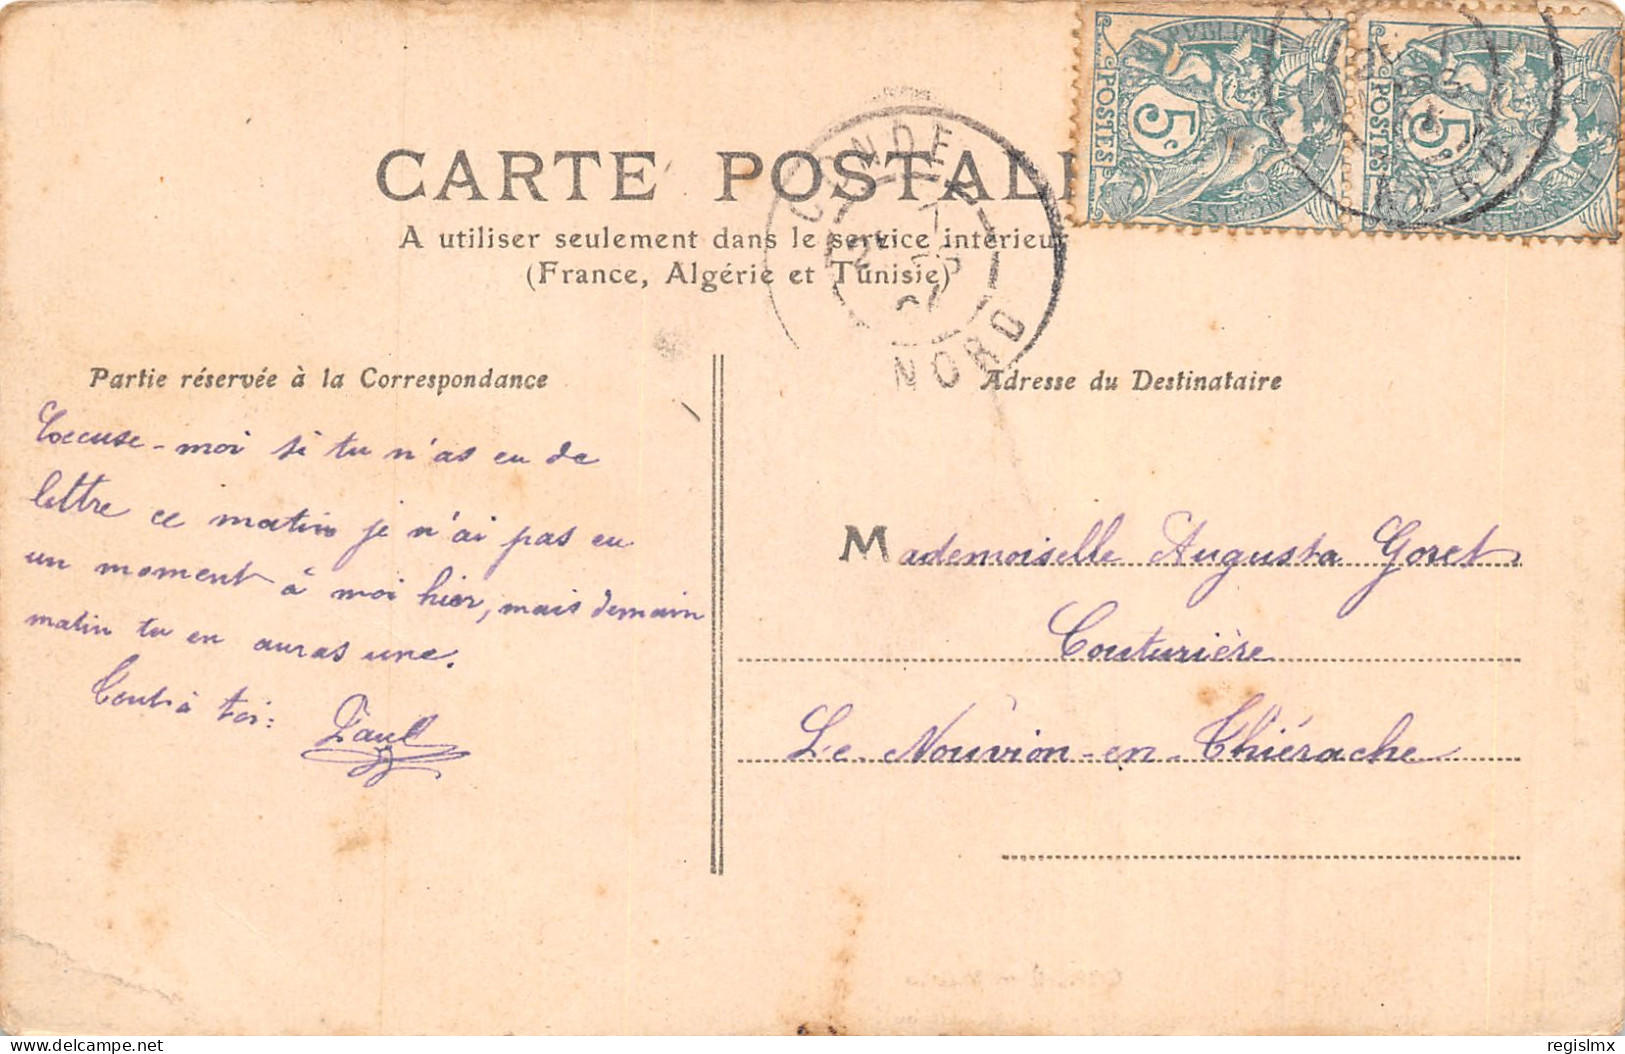 CARTE POSTALE
A utiliser seulement dans le service intérieur
(France, Algérie et Tunisie)
RÉPUBLIQUE FRANÇAISE
POSTES
5c
POSTES
5c
CONDE
NORD
NORD
Partie réservée à la Correspondance
Excuse-moi si tu n'as eu de
lettre ce matin je n'ai pas eu
un moment à moi hier, mais demain
matin tu en auras une.
Tout à toi:
Paul
Adresse du Destinataire
Mademoiselle Augusta Goret
Couturière
Le Nouvion-en-Thiérache
regislmx
delcampe.net